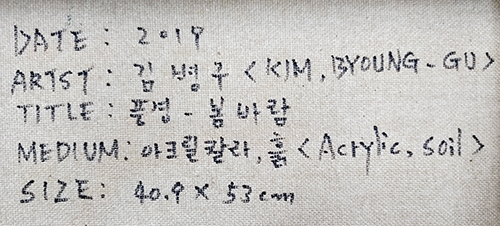 DATE: 2019
ARTST: 김병구 <KIM, BYOUNG-GU>
TITLE: 풍경 - 봄바람
MEDIUM: 아크릴칼라, 흙 <Acrylic, soil>
SIZE: 40.9 × 53cm